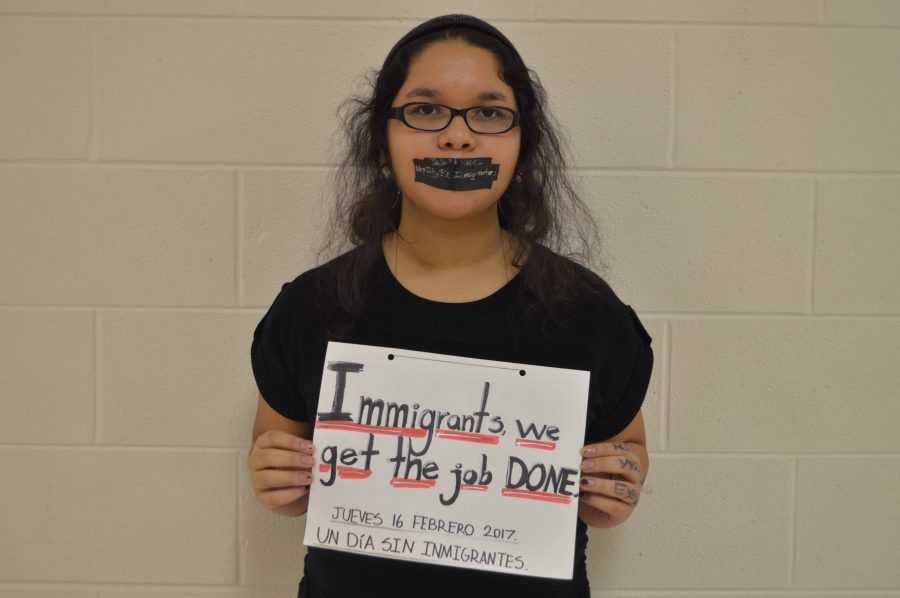 Un Día Sin Inmigrantes
Immigrants, we
get the job DONE.
JUEVES 16 FEBRERO 2017.
UN DÍA SIN INMIGRANTES.